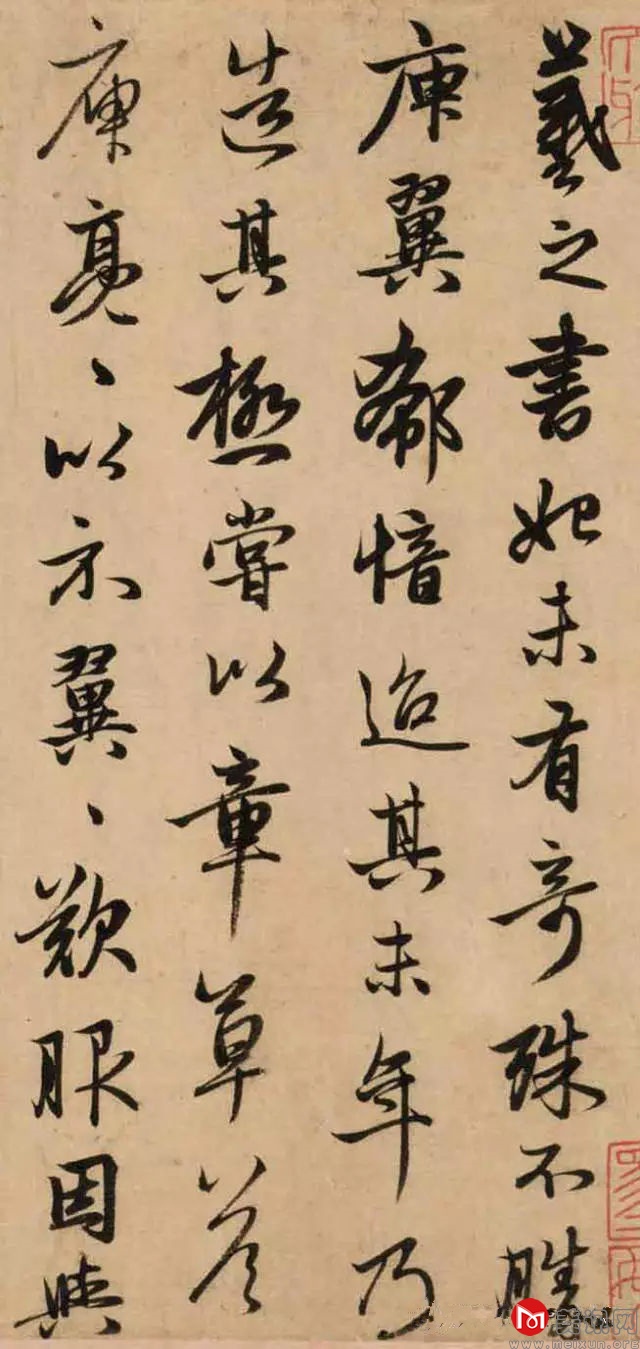 羲之書始未有奇殊不勝
庾翼郗愔迨其末年乃
造其極嘗以章草答
庾亮、以示翼、歎服因與
www.meixun.org